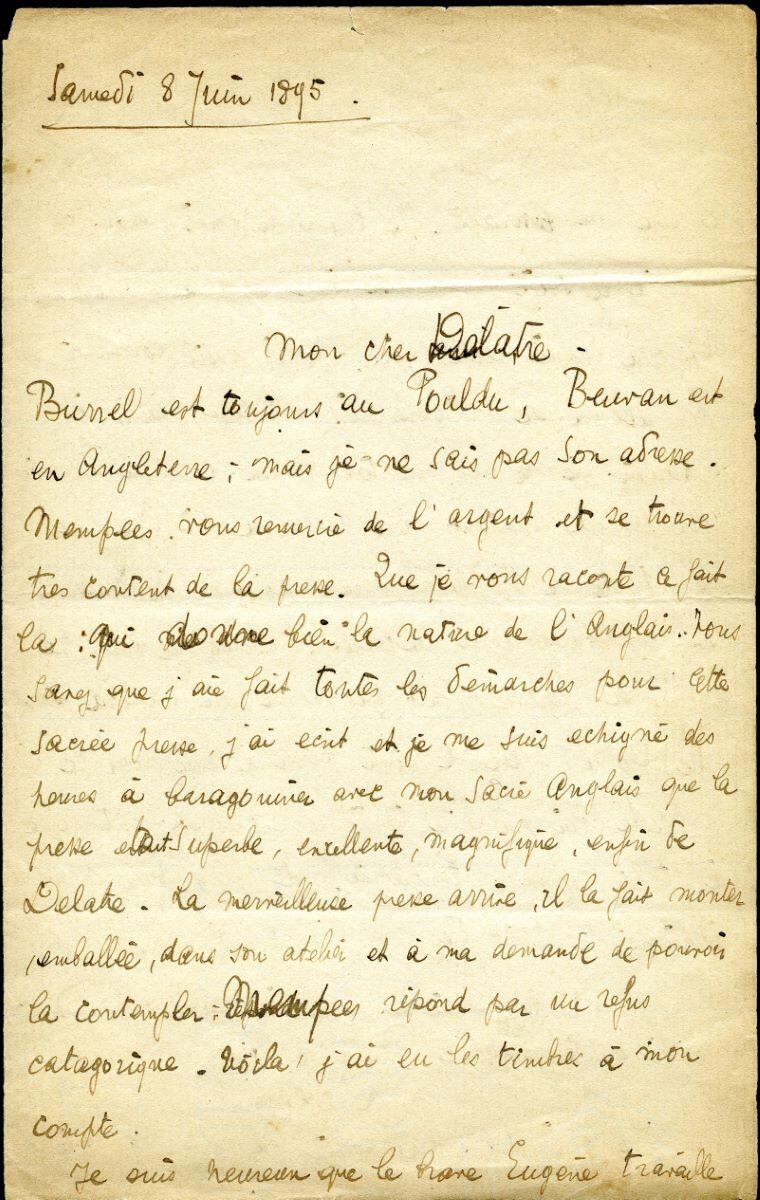 Samedi 8 Juin 1895.
Mon cher Delâtre -
Burrel est toujours au Pouldu, Beuvan est
en Angleterre ; mais je ne sais pas son adresse.
Mempees vous remercie de l'argent et se trouve
tres content de la presse. Que je vous raconte ce fait
la : qui donne bien la nature de l'Anglais. Vous
savez que j'aie fait toutes les démarches pour cette
sacrée presse, j'ai ecrit et je me suis echigné des
heures à baragouiner avec mon sacré Anglais que la
presse etait superbe, excellente, magnifique, enfin de
Delatre. La merveilleuse presse arrive, il la fait monter
, emballée, dans son atelier et à ma demande de pouvoir
la contempler : Mempees répond par un refus
catagorique. Voila ! j'ai eu les timbres à mon
compte.
Je suis heureux que le brave Eugène travaille